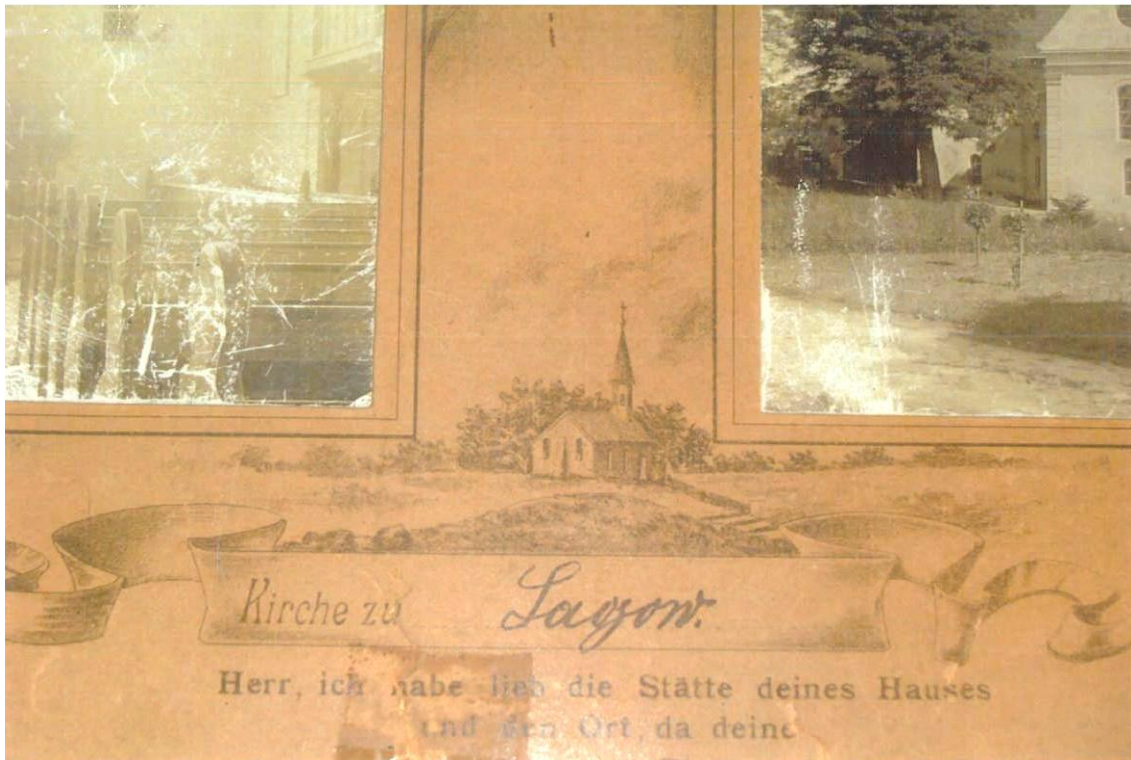 Kirche zu Lagow.
Herr, ich habe lieb die Stätte deines Hauses
und den Ort, da deine